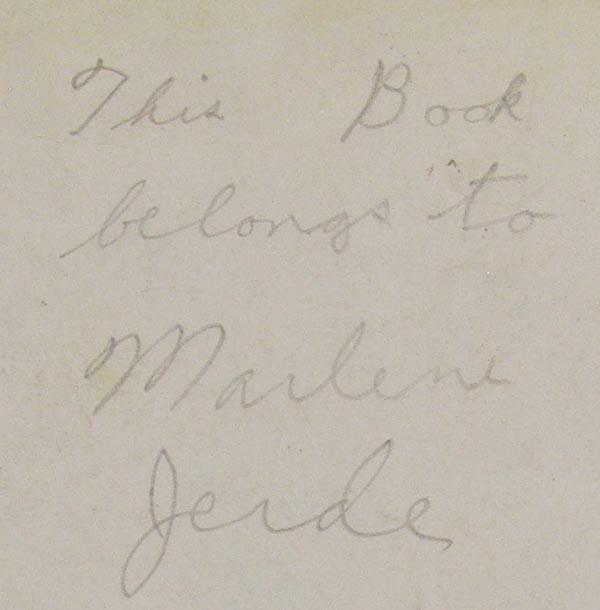 This Book
belongs to
Marlene
Jerde